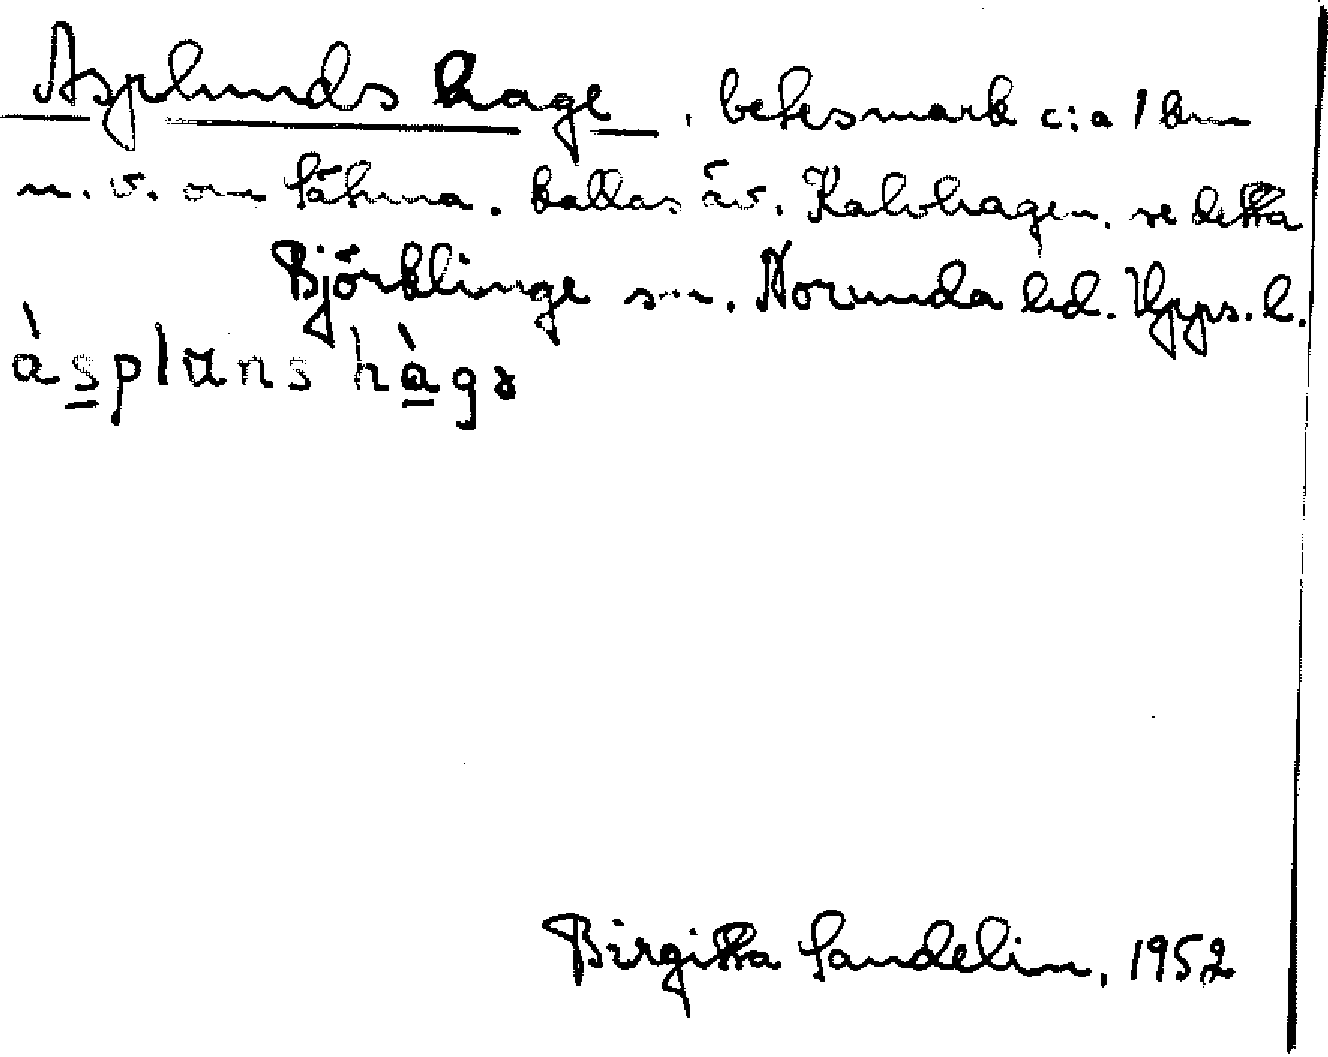 Asplunds hage, betesmark c:a 1 km
n.v. om Sätuna. kallas äv. Kalvhagen. se detta
Björklinge sn. Norunda hd. Upps. l.
àspluns hàgə
Birgitta Sandelin, 1952